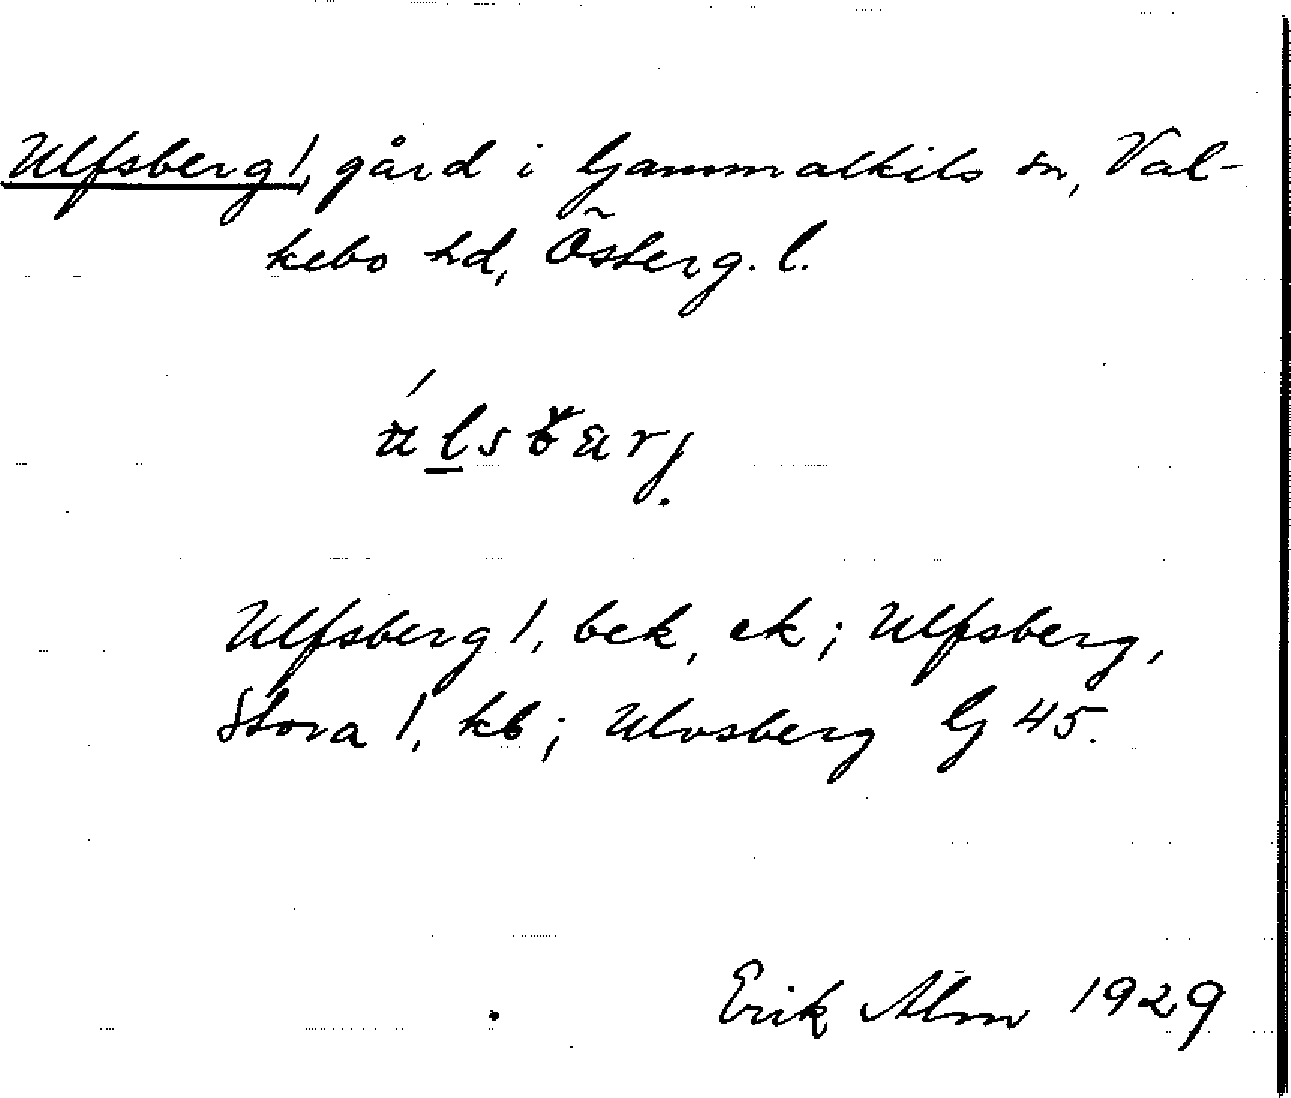 Ulfsberg!, gård i Gammalkils sn, Val-
kebo hd, Österg. l.
Ulfsberg!, bek, ek; Ulfsberg,
Stora!, kb; Ulvsberg G 45.
Erik Alm 1929